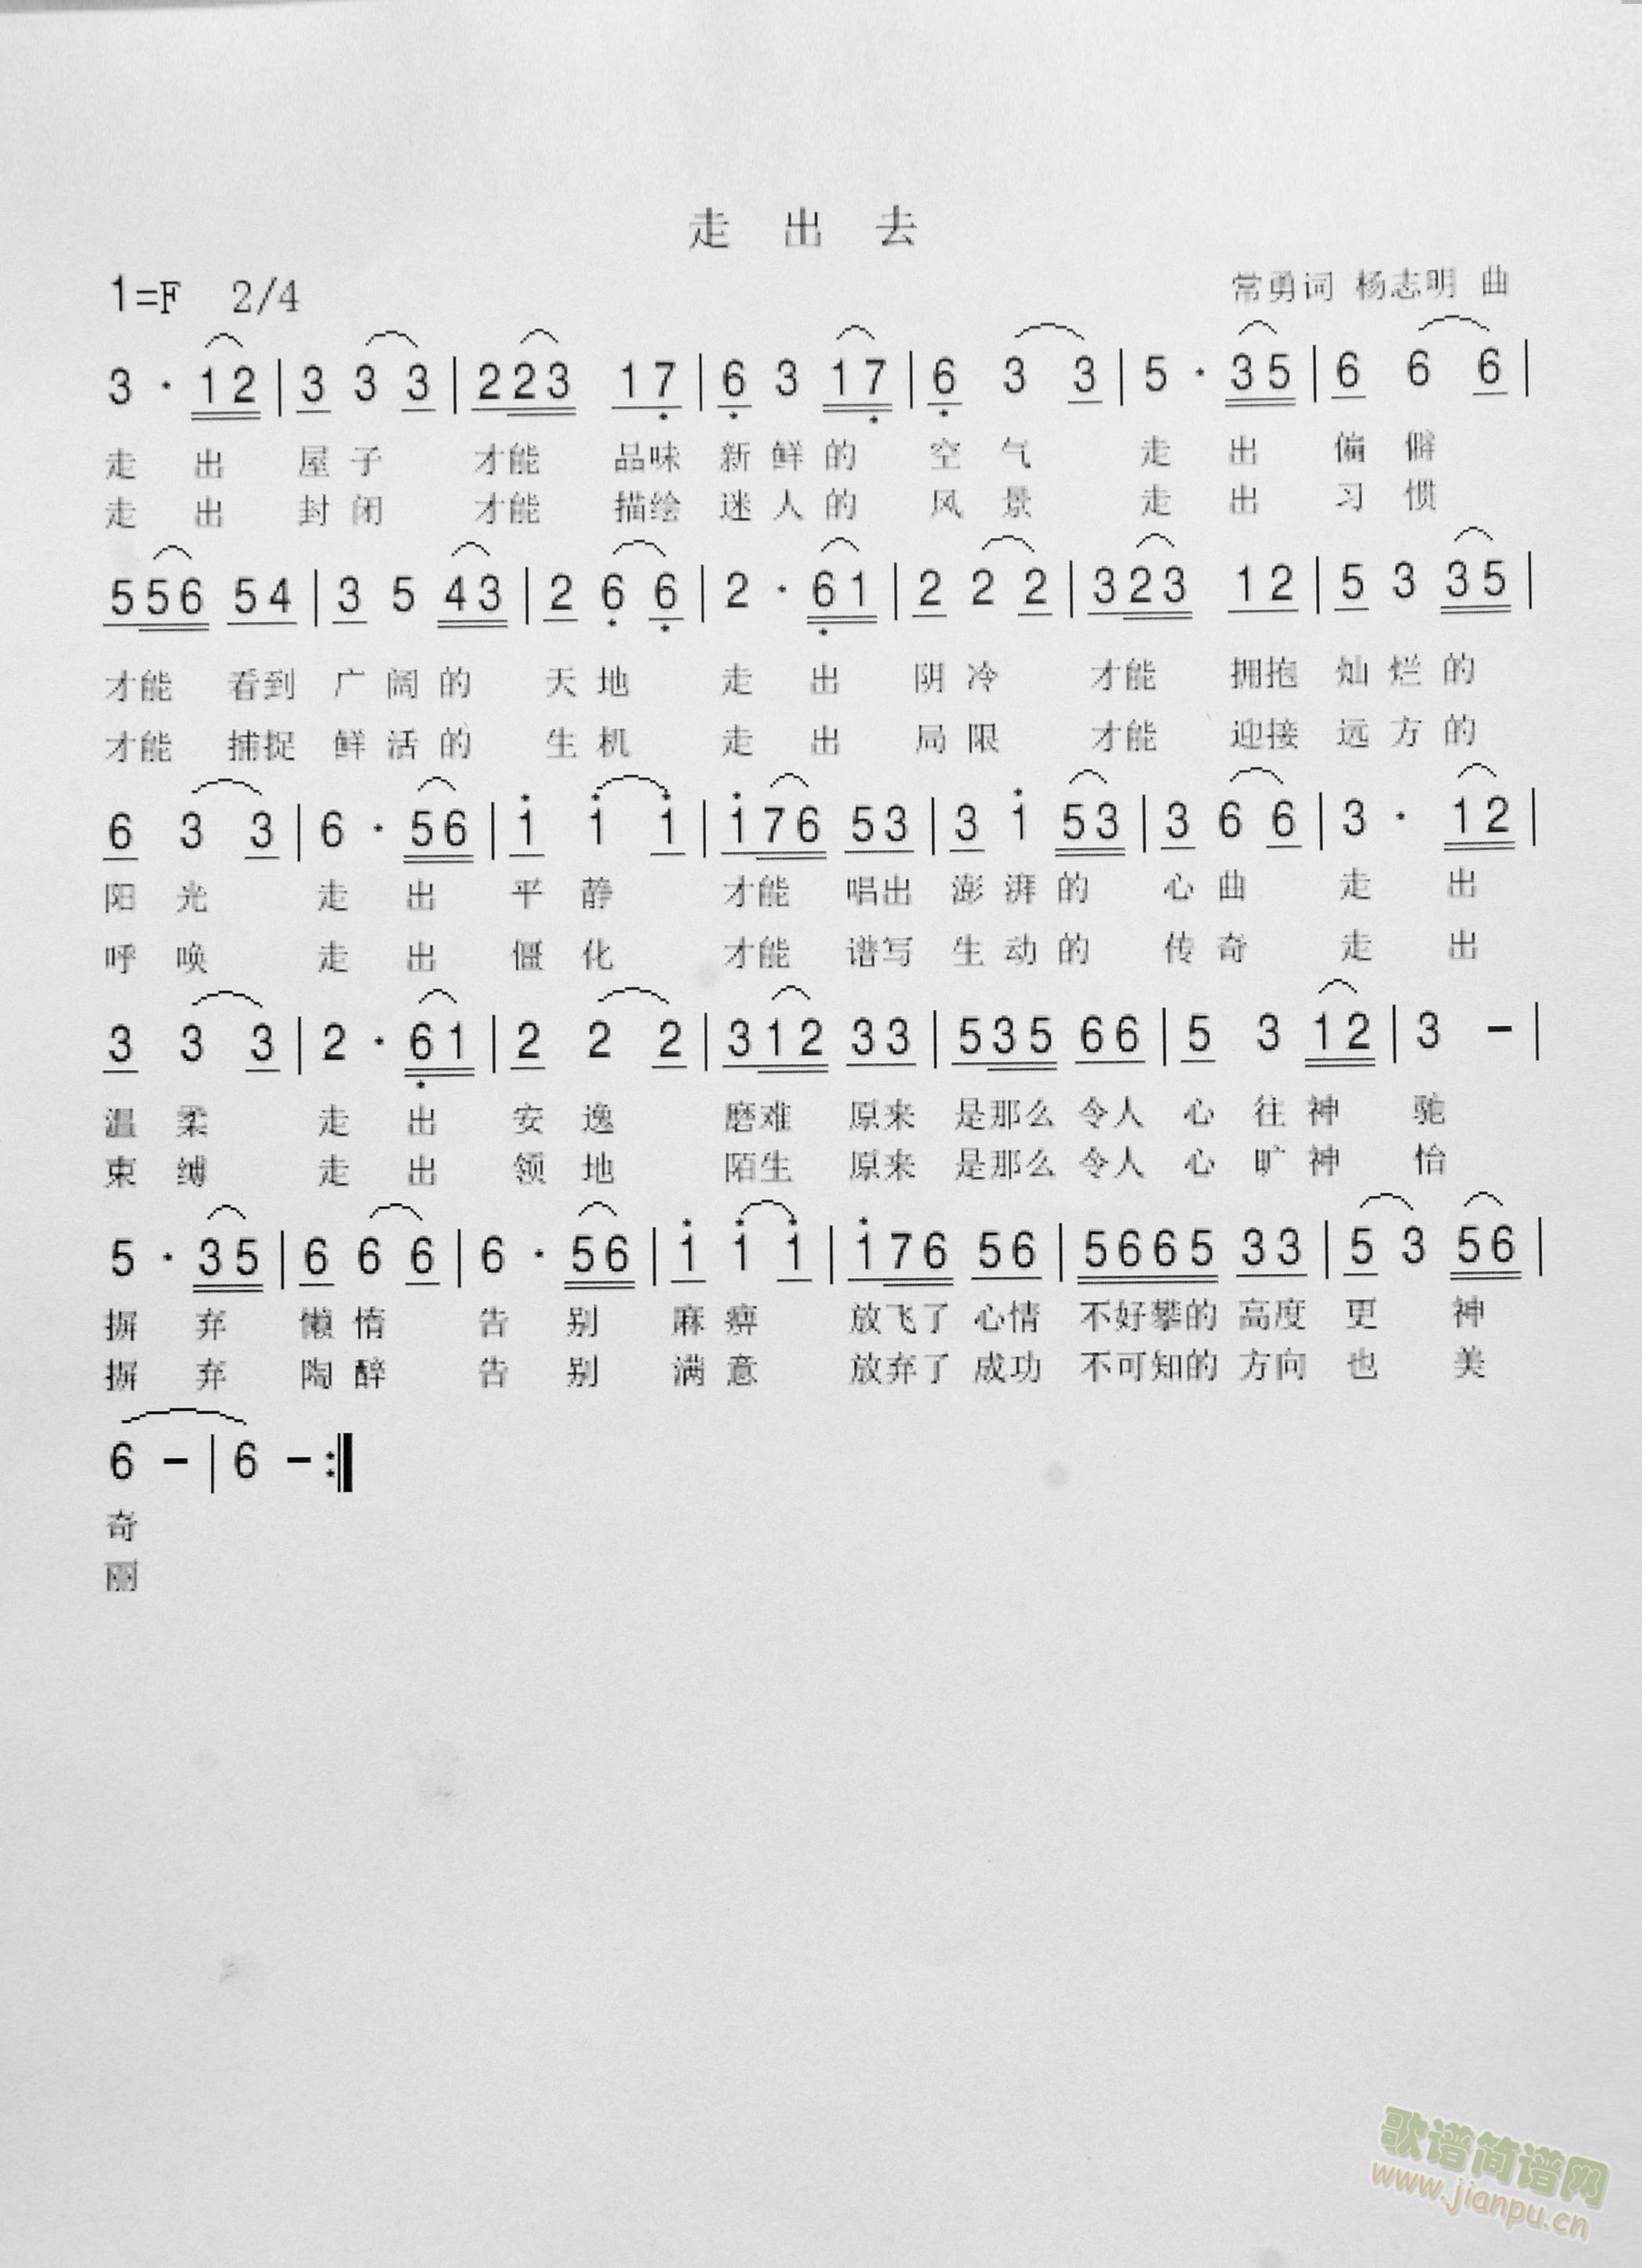 走 出 去
1=F 2/4 常勇词 杨志明 曲
3 · 1 2 | 3 3 3 | 2 2 3 1 7 | 6 3 1 7 | 6 3 3 | 5 · 3 5 | 6 6 6 |
走 出 屋 子 才能 品味 新 鲜 的 空 气 走 出 偏 僻
走 出 封 闭 才能 描绘 迷 人 的 风 景 走 出 习 惯
5 5 6 5 4 | 3 5 4 3 | 2 6 6 | 2 · 6 1 | 2 2 2 | 3 2 3 1 2 | 5 3 3 5 |
才能 看到 广 阔 的 天 地 走 出 阴 冷 才能 拥抱 灿 烂 的
才能 捕捉 鲜 活 的 生 机 走 出 局 限 才能 迎接 远 方 的
6 3 3 | 6 · 5 6 | 1 1 1 | 1 7 6 5 3 | 3 1 5 3 | 3 6 6 | 3 · 1 2 |
阳 光 走 出 平 静 才能 唱出 澎 湃 的 心 曲 走 出
呼 唤 走 出 僵 化 才能 谱写 生 动 的 传 奇 走 出
3 3 3 | 2 · 6 1 | 2 2 2 | 3 1 2 3 3 | 5 3 5 6 6 | 5 3 1 2 | 3 - |
温 柔 走 出 安 逸 磨难 原来 是那么 令人 心 往 神 驰
束 缚 走 出 领 地 陌生 原来 是那么 令人 心 旷 神 怡
5 · 3 5 | 6 6 6 | 6 · 5 6 | 1 1 1 | 1 7 6 5 6 | 5 6 6 5 3 3 | 5 3 5 6 |
摒 弃 懒 惰 告 别 麻 痹 放飞了 心情 不好攀的 高度 更 神
摒 弃 陶 醉 告 别 满 意 放弃了 成功 不可知的 方向 也 美
6 - | 6 - :‖
奇
丽
歌谱简谱网
www.jianpu.cn